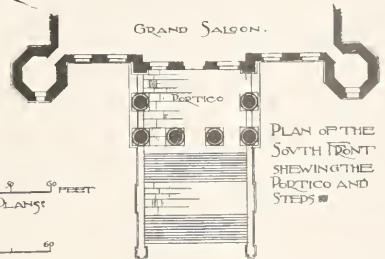 GRAND SALOON.
PORTICO
PLAN OF THE
SOVTH FRONT
SHEWING THE
PORTICO AND
STEPS
50 60 FEET
PLANS:
60